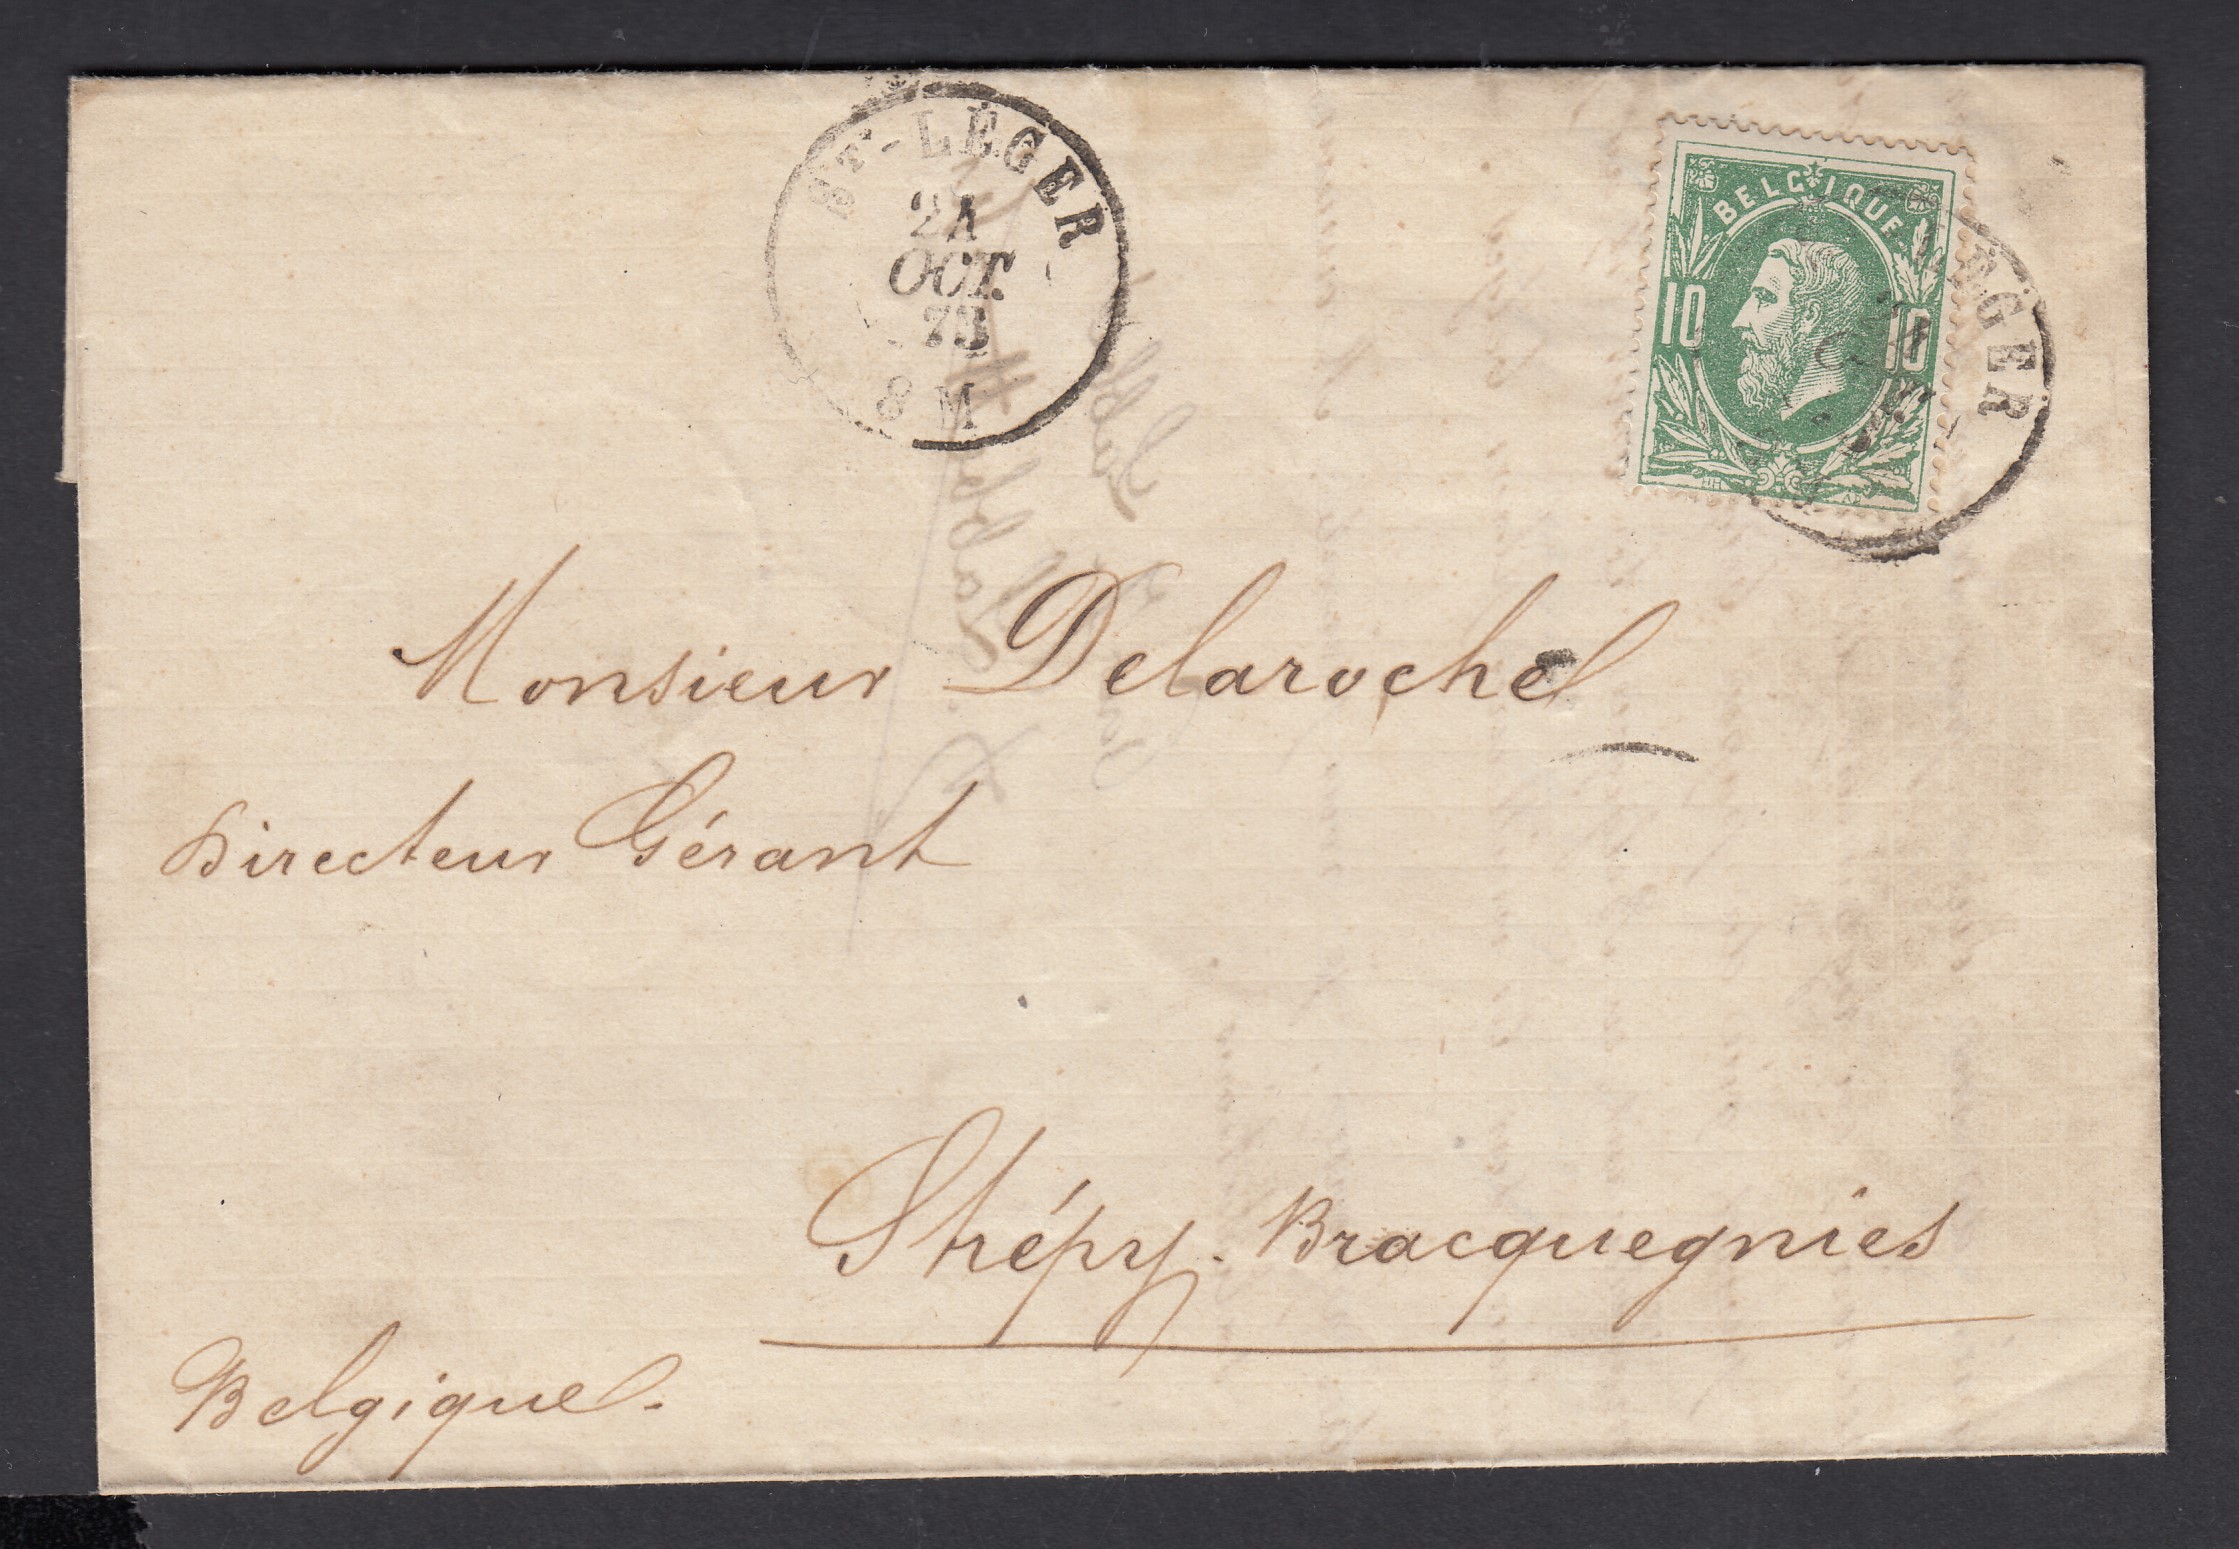 ST-LÉGER
21
OCT.
73
8 M
BELGIQUE
10 10
EGER
Monsieur Delaroche
Directeur Gérant
Strépy-Bracquegnies
Belgique.